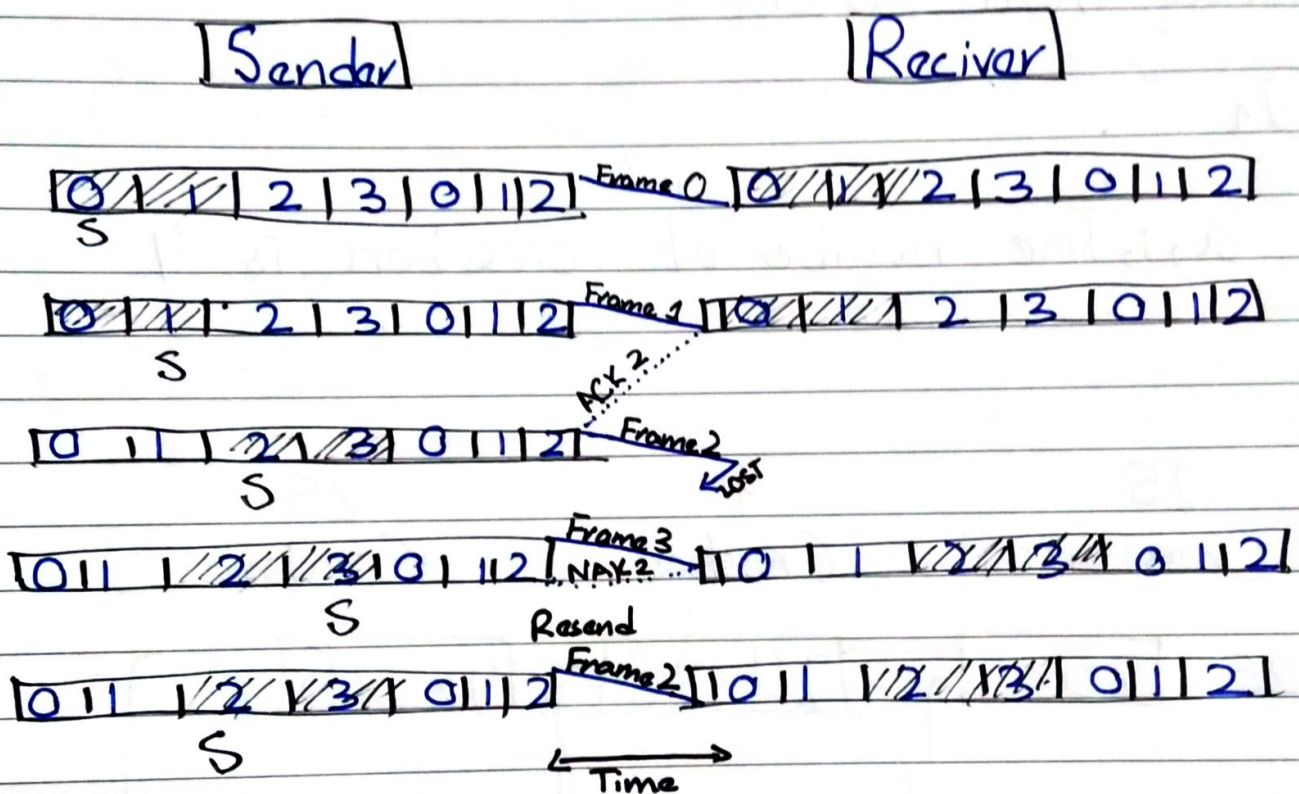 Sender Reciver
0 1 2 3 0 1 2 Frame 0 0 1 2 3 0 1 2
S
0 1 2 3 0 1 2 Frame 1 0 1 2 3 0 1 2
S
ACK 2
0 1 2 3 0 1 2 Frame 2
LOST
S
Frame 3
0 1 2 3 0 1 2 NAK 2 0 1 2 3 0 1 2
S
Resend
0 1 2 3 0 1 2 Frame 2 0 1 2 3 0 1 2
S
Time